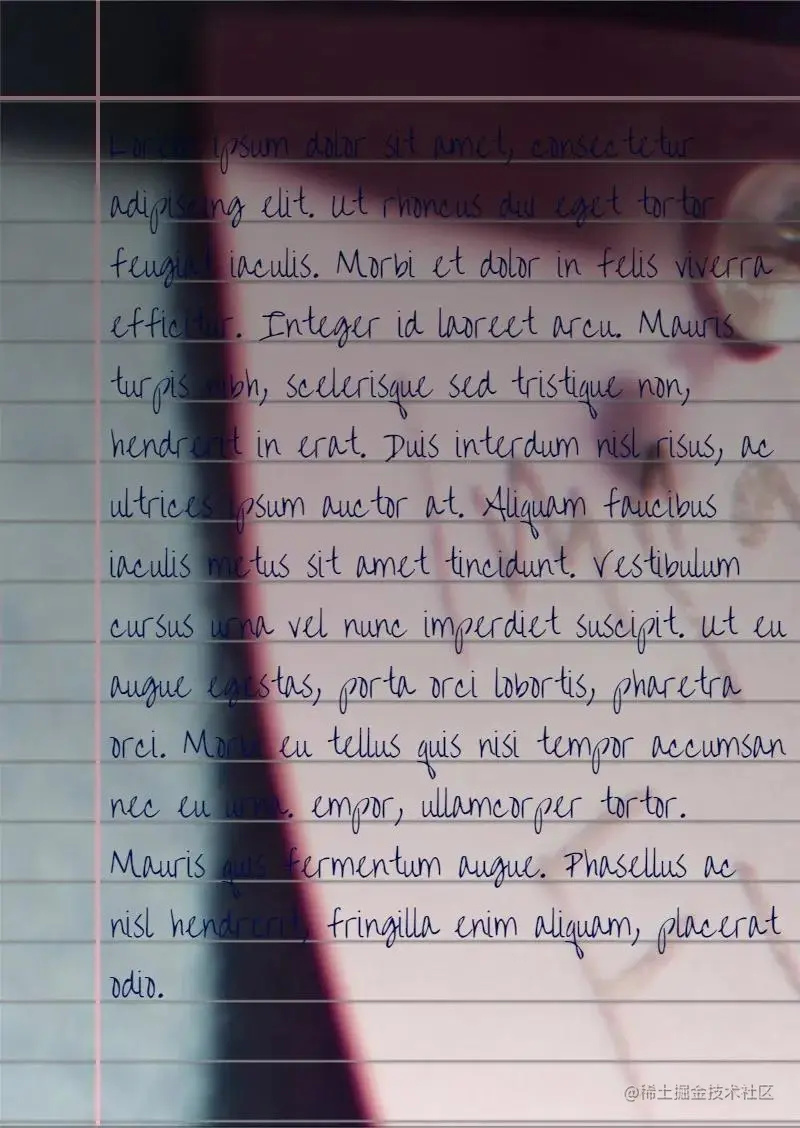 Lorem ipsum dolor sit amet, consectetur
adipiscing elit. Ut rhoncus dui eget tortor
feugiat iaculis. Morbi et dolor in felis viverra
efficitur. Integer id laoreet arcu. Mauris
turpis nibh, scelerisque sed tristique non,
hendrerit in erat. Duis interdum nisl risus, ac
ultrices ipsum auctor at. Aliquam faucibus
iaculis metus sit amet tincidunt. Vestibulum
cursus urna vel nunc imperdiet suscipit. Ut eu
augue egestas, porta orci lobortis, pharetra
orci. Morbi eu tellus quis nisi tempor accumsan
nec eu urna. empor, ullamcorper tortor.
Mauris quis fermentum augue. Phasellus ac
nisl hendrerit, fringilla enim aliquam, placerat
odio.
@稀土掘金技术社区